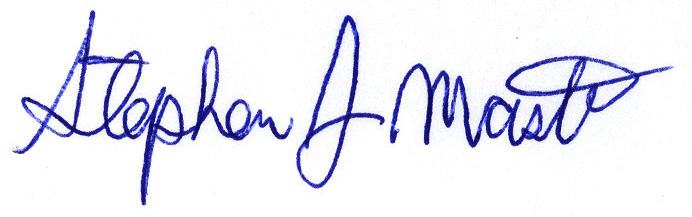 Stephen J Mast